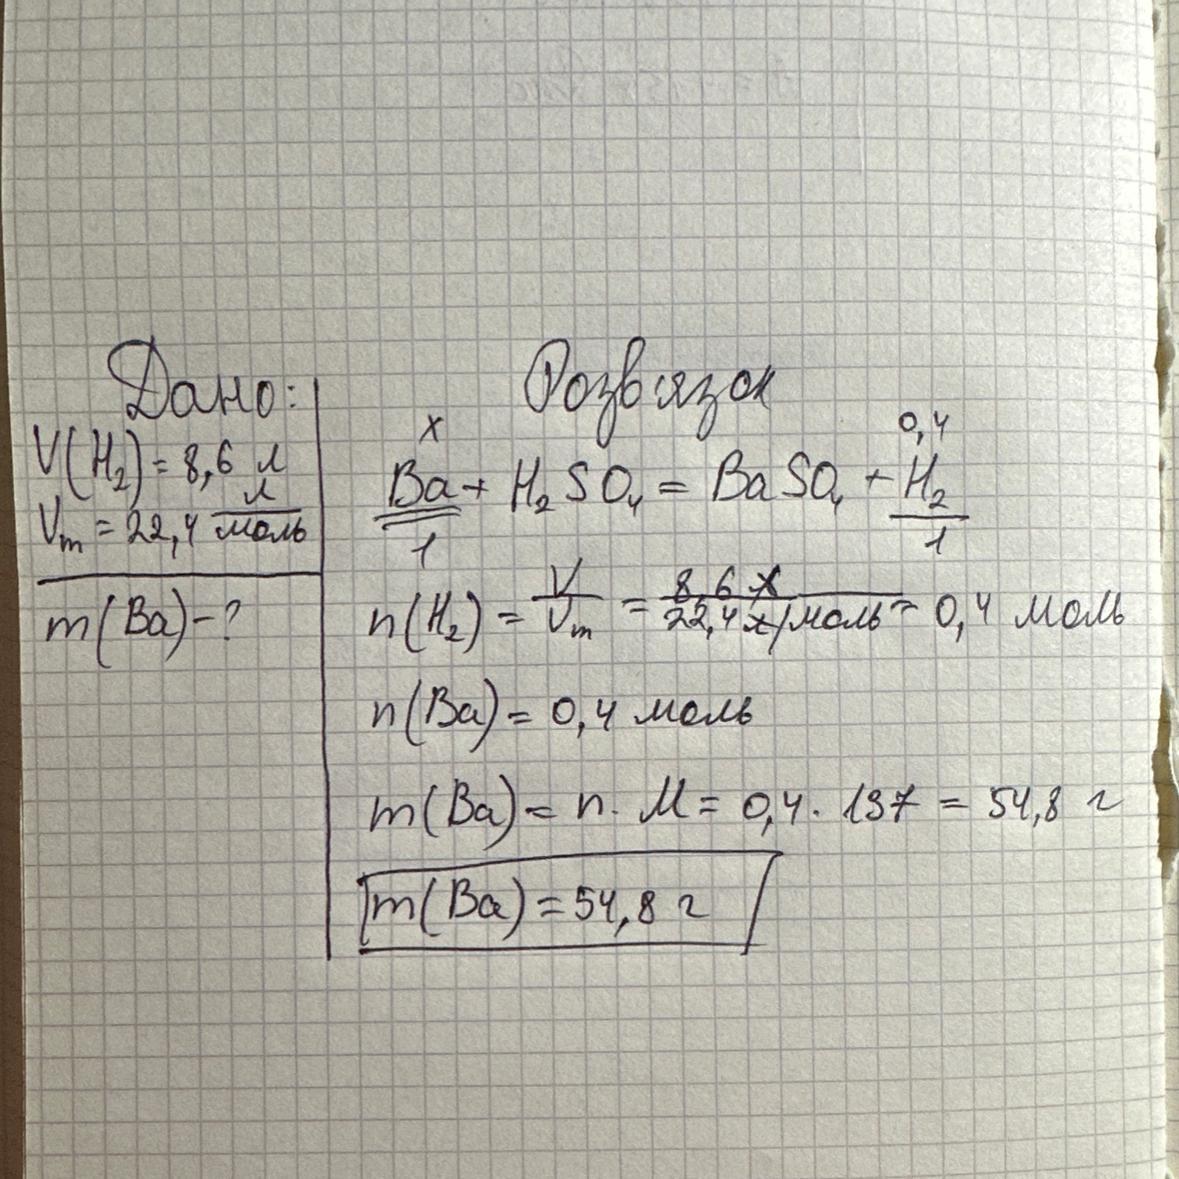 Дано:
V(H₂) = 8,6 л
Vm = 22,4 л/моль
m(Ba) - ?
Розвязок
x 0,4
Ba + H₂SO₄ = BaSO₄ + H₂
1 1
n(H₂) = V/Vm = 8,6 л/22,4 л/моль = 0,4 моль
n(Ba) = 0,4 моль
m(Ba) = n · M = 0,4 · 137 = 54,8 г
m(Ba) = 54,8 г